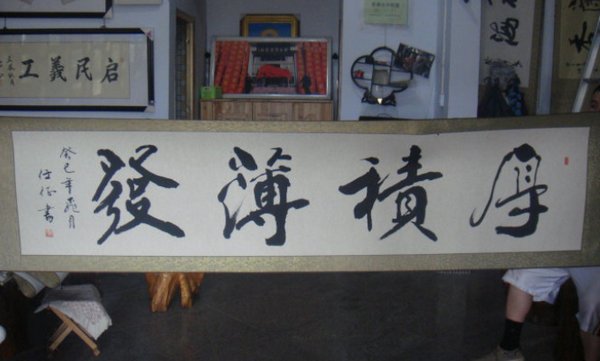 启民義工
厚積薄發
癸巳年月
任書